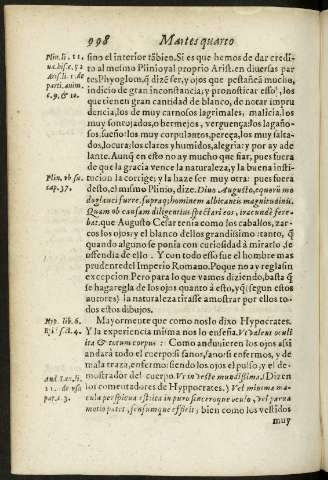 998 Martes quarto
sino el interior tãbien. Si es que hemos de dar credi-
to al mesmo Plinio y al proprio Arist. en diuersas par
tes Phyoglom. q̃ dizẽ ser, y ojos que pestañeã mucho,
indicio de gran inconstancia, y pronosticar esso, los
que tienen gran cantidad de blanco, de notar impru
dencia, los de muy carnosos lagrimales, malicia, los
muy y bermejos, verguença: los lagaño-
sos, sueño: los muy corpulentos, pereça, los muy salta-
dos, locura: los claros y humidos, alegria: y por ay ade
lante. Aunq̃ en esto no ay mucho que fiar, pues fuera
de que la gracia vence la naturaleza, y la buena insti-
tucion la corrige; y la haze ser muy otra: pues fuera
desto, el mismo Plinio, dize. Diuo Augusto, equorũ mo
do glauci fuere, supraq; hominem albicantis magnitudinis.
Quam ob causam diligentius spectari eos, iracundè fere-
bat, que Augusto Cesar tenia como los caballos, zar-
cos los ojos: y el blanco dellos grandissimo: tanto, q̃
quando alguno se ponia con curiosidad à mirarlo, se
offendia de ello. Y con todo esso fue el hombre mas
prudente del Imperio Romano. Poque no ay regla sin
excepcion Pero para lo que vamos diziendo, basta q̃
se haga regla de los ojos quanto à esto, y q̃ (segun estos
autores) la naturaleza tirasse amostrar por ellos to-
dos estos dibujos.
Mayormente que como nos lo dixo Hypocrates.
Y la experiencia misma nos lo enseña. Vt valent oculi
ita & totum corpus: Como anduuieren los ojos assi
andará todo el cuerpo: si sanos, sano: si enfermos, y de
mala traza, enfermo: siendo los ojos el pulso, y el de-
mostrador del cuerpo. (Dizen
los comentadores de Hyppocrates) Vel minima ma-
cula perspicua est: ita in puro sinceroque oculo, vel parua
motio patet, sensumque efficit; bien como los vestidos
muy
Plin. li. 11.
Arist. li. 1. de
parti. anim.
c. 9. & 10.
Plin. vb su.
cap. 37.
Hyp. lib. 6.
11. de vsu
part. c. 3.